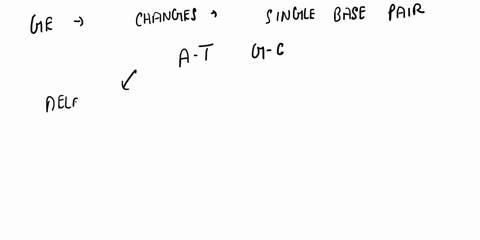 GE → CHANGES → SINGLE BASE PAIR
A-T G-C
DELE